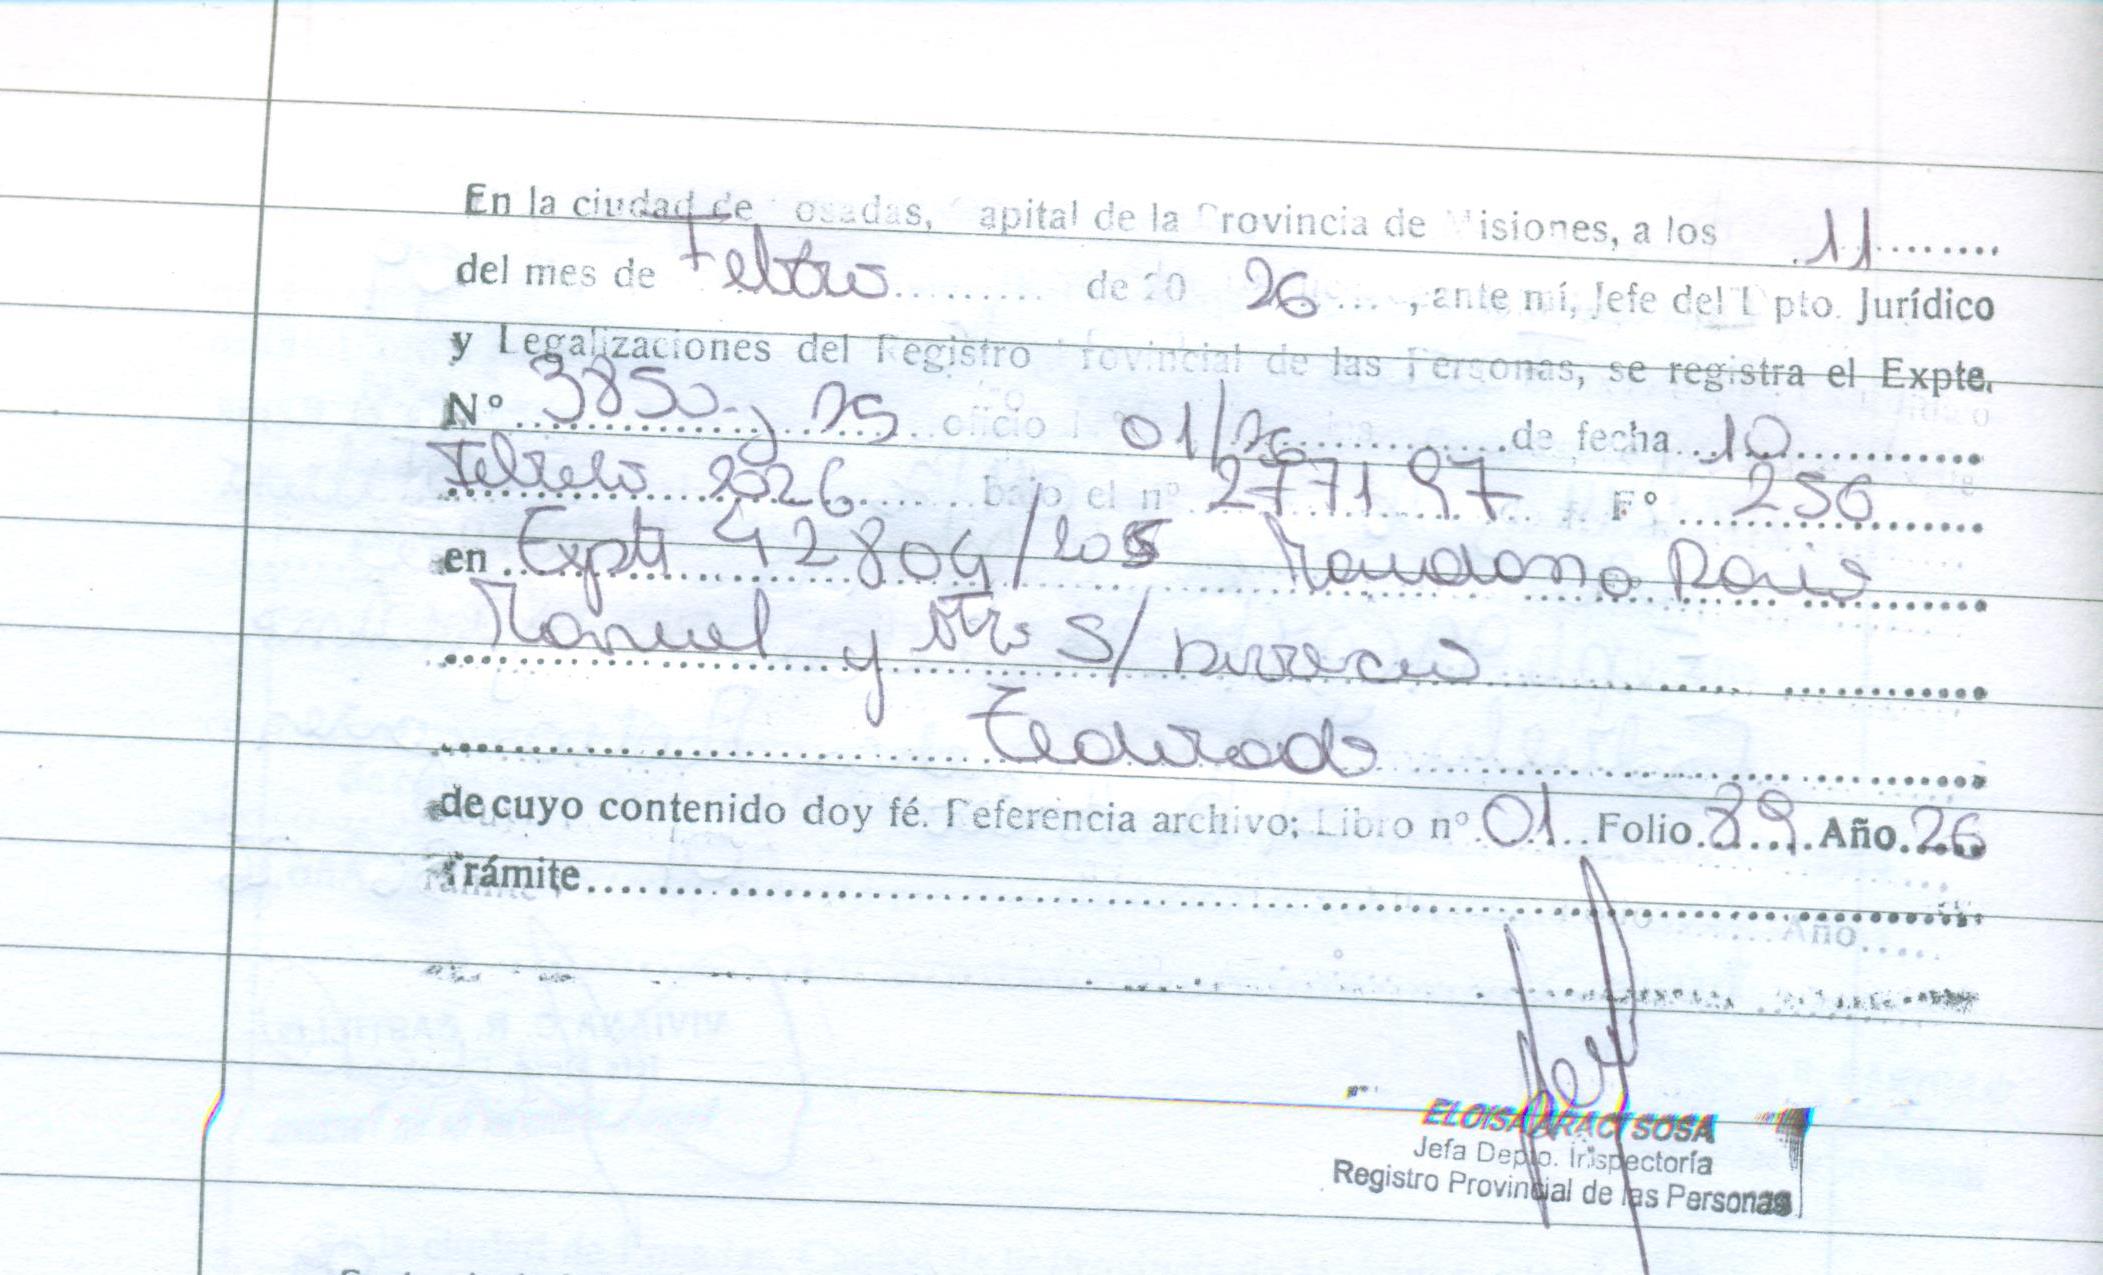 En la ciudad de osadas, apital de la Provincia de Misiones, a los 11
del mes de Febrero de 20 26, ante mí, Jefe del Dpto. Jurídico
y Legalizaciones del Registro Provincial de las Personas, se registra el Expte.
Nº 3850-y 25 oficio 01/26 de fecha 10
Febrero 2026 bajo el nº 277197 Fº 256
en Expte 42804/205
Manuel y otro S/
de cuyo contenido doy fé. Referencia archivo; Libro nº 01 Folio 89 Año 26
Trámite
Año
VIVIANA C. R. CASTILLO
ELOISA ARACI SOSA
Jefa Depto. Inspectoría
Registro Provincial de las Personas